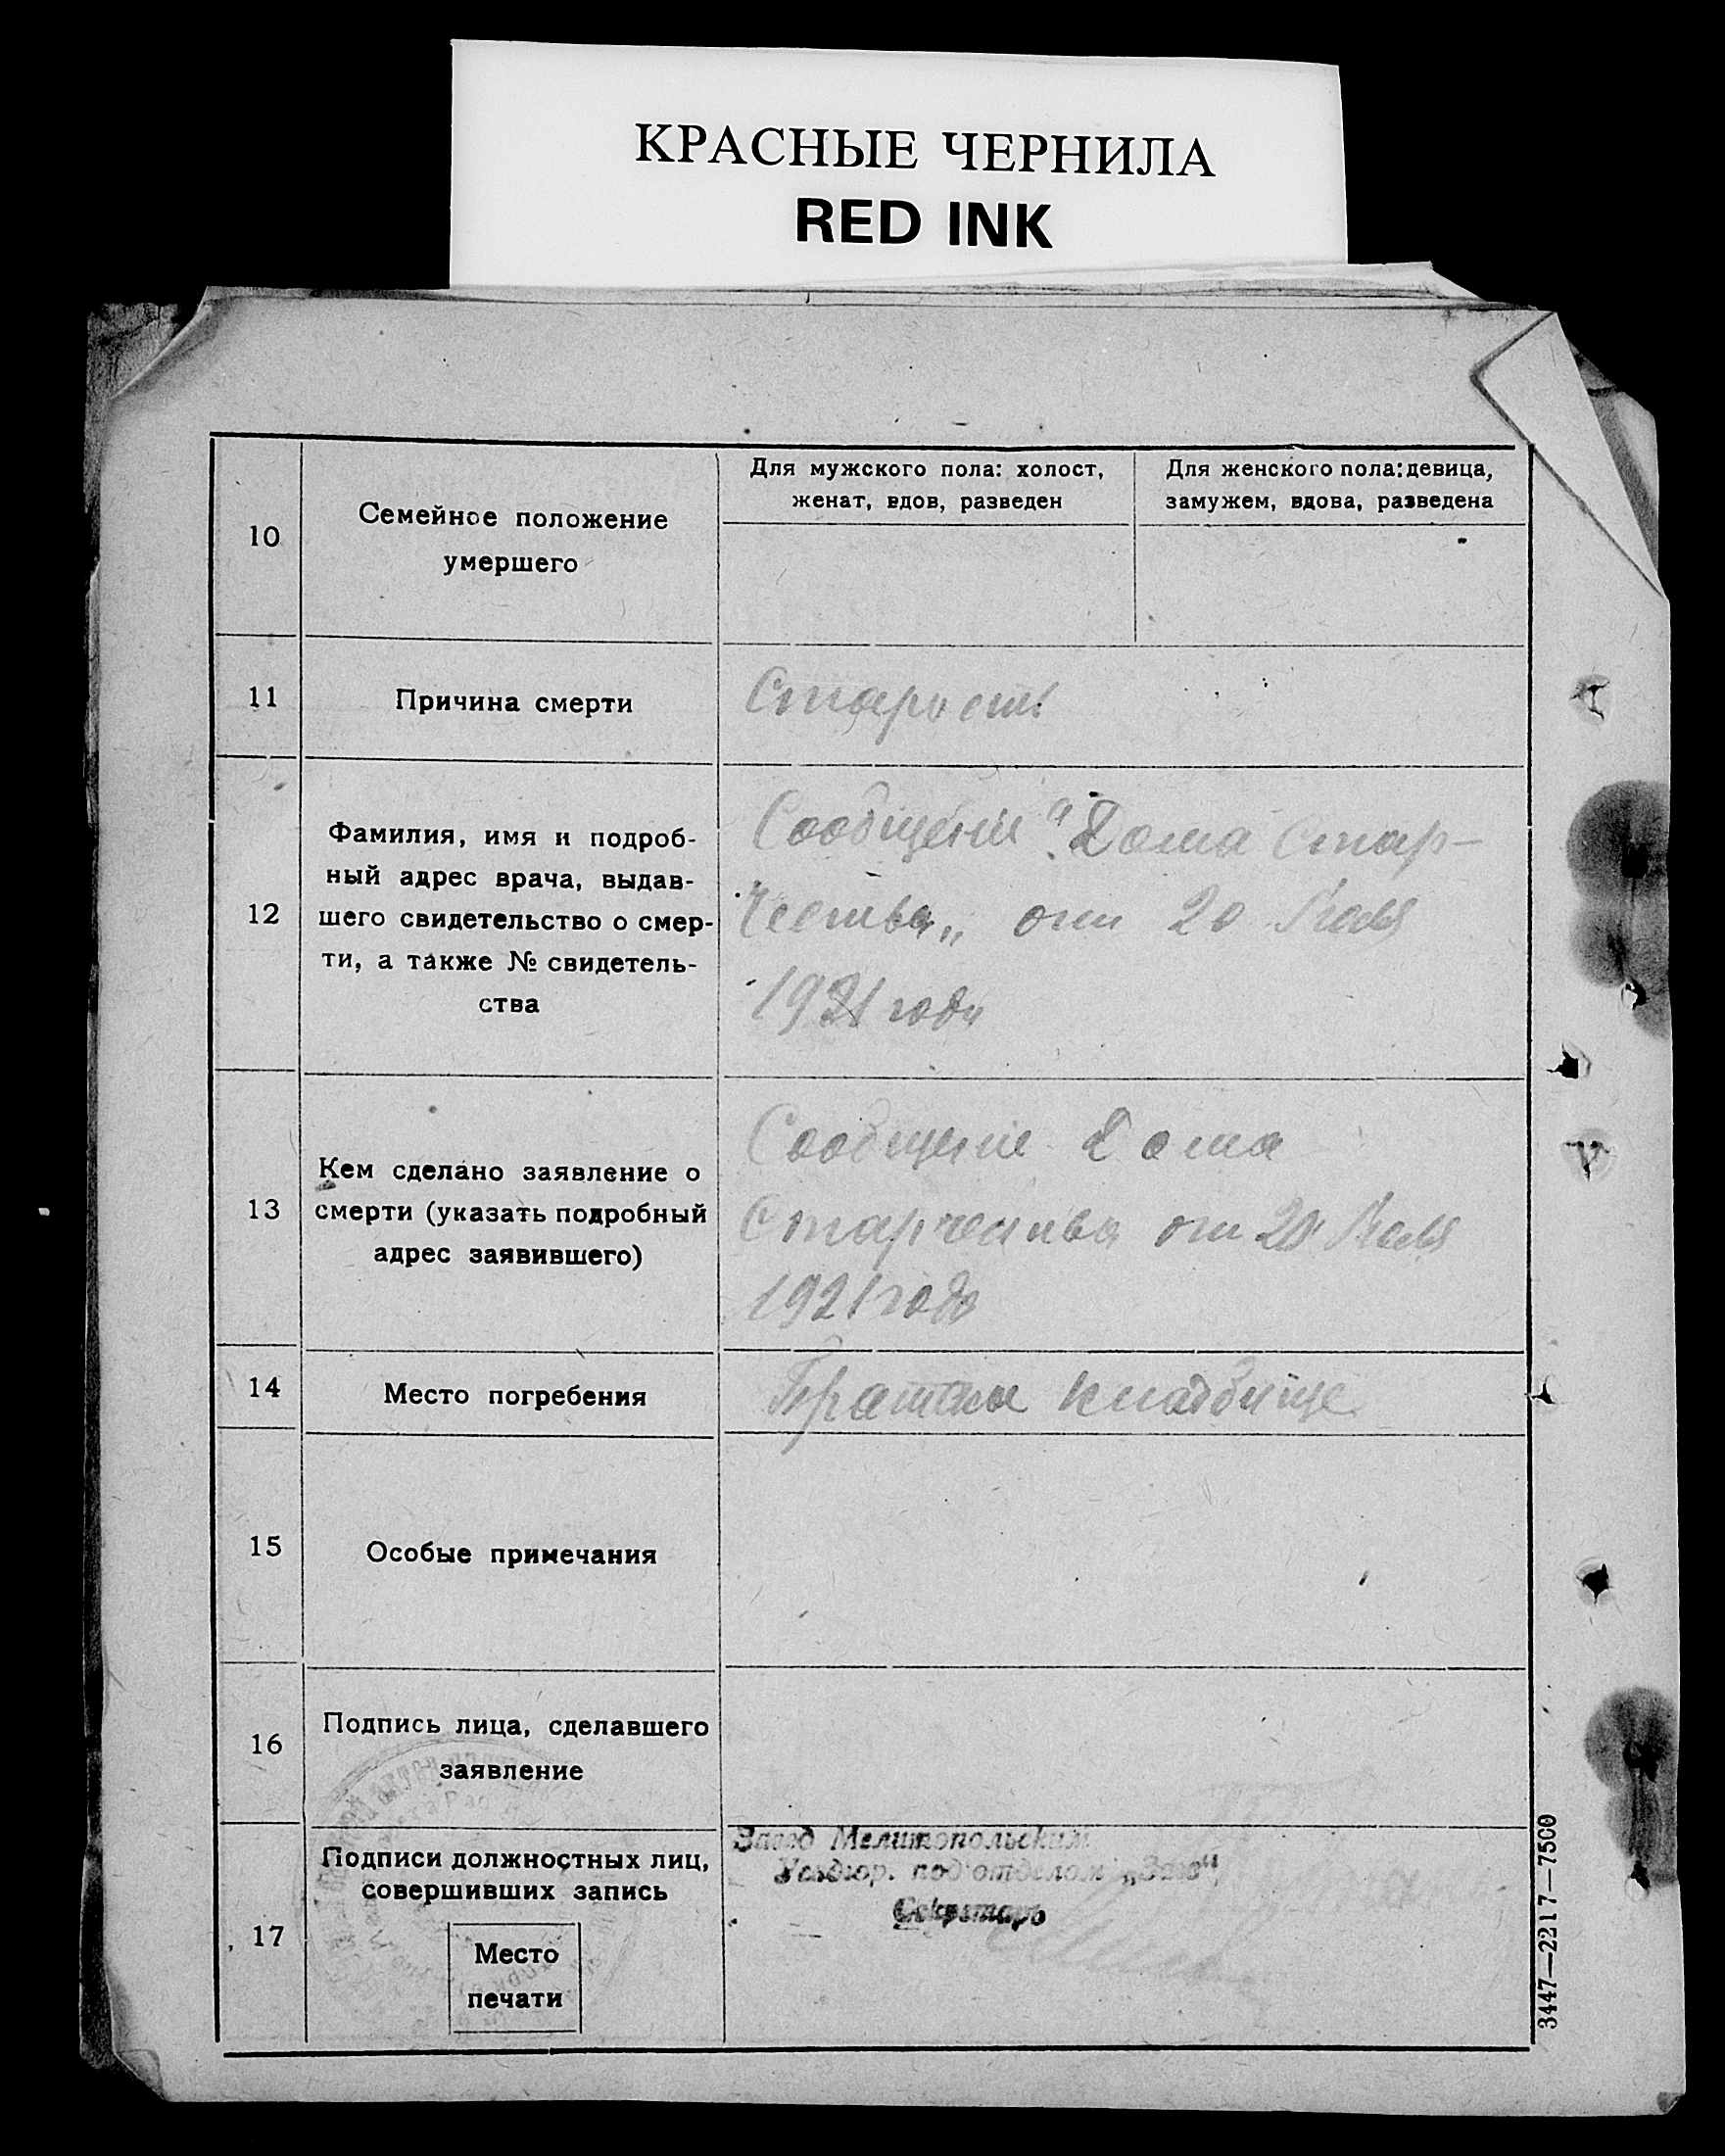 КРАСНЫЕ ЧЕРНИЛА
RED INK
10
Семейное положение
умершего
Для мужского пола: холост,
женат, вдов, разведен
Для женского пола: девица,
замужем, вдова, разведена
11
Причина смерти
Старость
12
Фамилия, имя и подроб-
ный адрес врача, выдав-
шего свидетельство о смер-
ти, а также № свидетель-
ства
Сообщение "Дома Стар-
чества„ от 20
1921 года
13
Кем сделано заявление о
смерти (указать подробный
адрес заявившего)
Сообщение Дома
Старчества от 20
1921 года
14
Место погребения
Братское кладбище
15
Особые примечания
16
Подпись лица, сделавшего
заявление
17
Подписи должностных лиц,
совершивших запись
Место
печати
Завед Мелитопольским
под'отделом „Загс"
Секретарь
3447—2217—7500